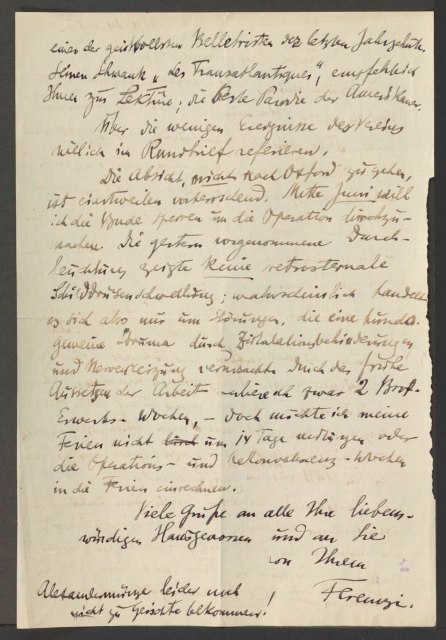 einer der geistvollsten Belletristen des letzten Jahrzehnts.
Seinen Schwank „des Transatlantiques“, empfehle ich
Ihnen zur Lektüre; die beste Parodie der Amerikaner.
Über die wenigen Ereignisse des Vereins
will ich im Rundbrief referieren.
Die Absicht, nicht nach Oxford zu gehen,
ist einstweilen vorherrschend. Mitte Juni will
ich die Bude sperren um die Operation durchzu-
machen. Die gestern vorgenommene Durch-
leuchtung zeigte keine retrosternale
Schilddrüsenschwellung; wahrscheinlich handelt
es sich also nur um Störungen, die eine hunds-
gemeine Struma durch Zirkulationsbehinderungen
und Nervenreizung verursacht. Durch das frühe
Aussetzen der Arbeit verliere ich zwar 2 Brot-
Erwerbs-Wochen, – doch möchte ich meine
Ferien nicht um 14 Tage verlängern oder
die Operations- und Rekonvaleszenz-Wochen
in die Ferien einrechnen.
Viele Grüße an alle Ihre liebens-
würdigen Hausgenossen und an Sie
von Ihrem
Ferenczi.
Alexandermünze leider noch
nicht zu Gesichte bekommen!